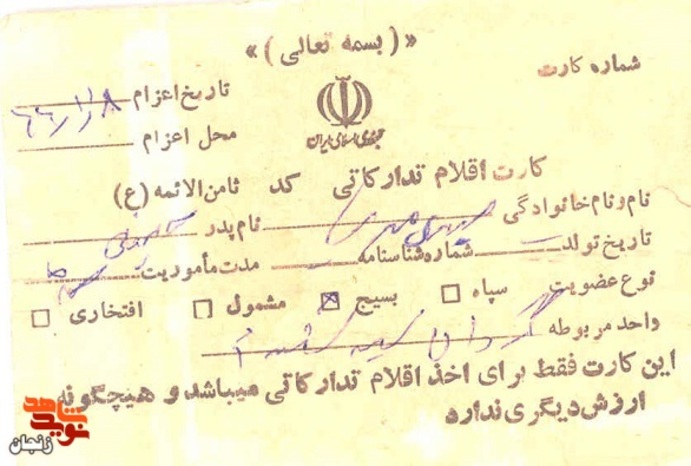 «( بسمه تعالی )»
شماره کارت
تاریخ اعزام ۶۶/۱/۸
محل اعزام
جمهوری اسلامی ایران
کارت اقلام تدارکاتی کد ثامن الائمه (ع)
نام و نام خانوادگی نام پدر
تاریخ تولد شماره شناسنامه مدت مأموریت
نوع عضویت سپاه □ بسیج ☒ مشمول □ افتخاری □
واحد مربوطه گردان
این کارت فقط برای اخذ اقلام تدارکاتی میباشد و هیچگونه
ارزش دیگری نداره
نوید شاهد
زنجان